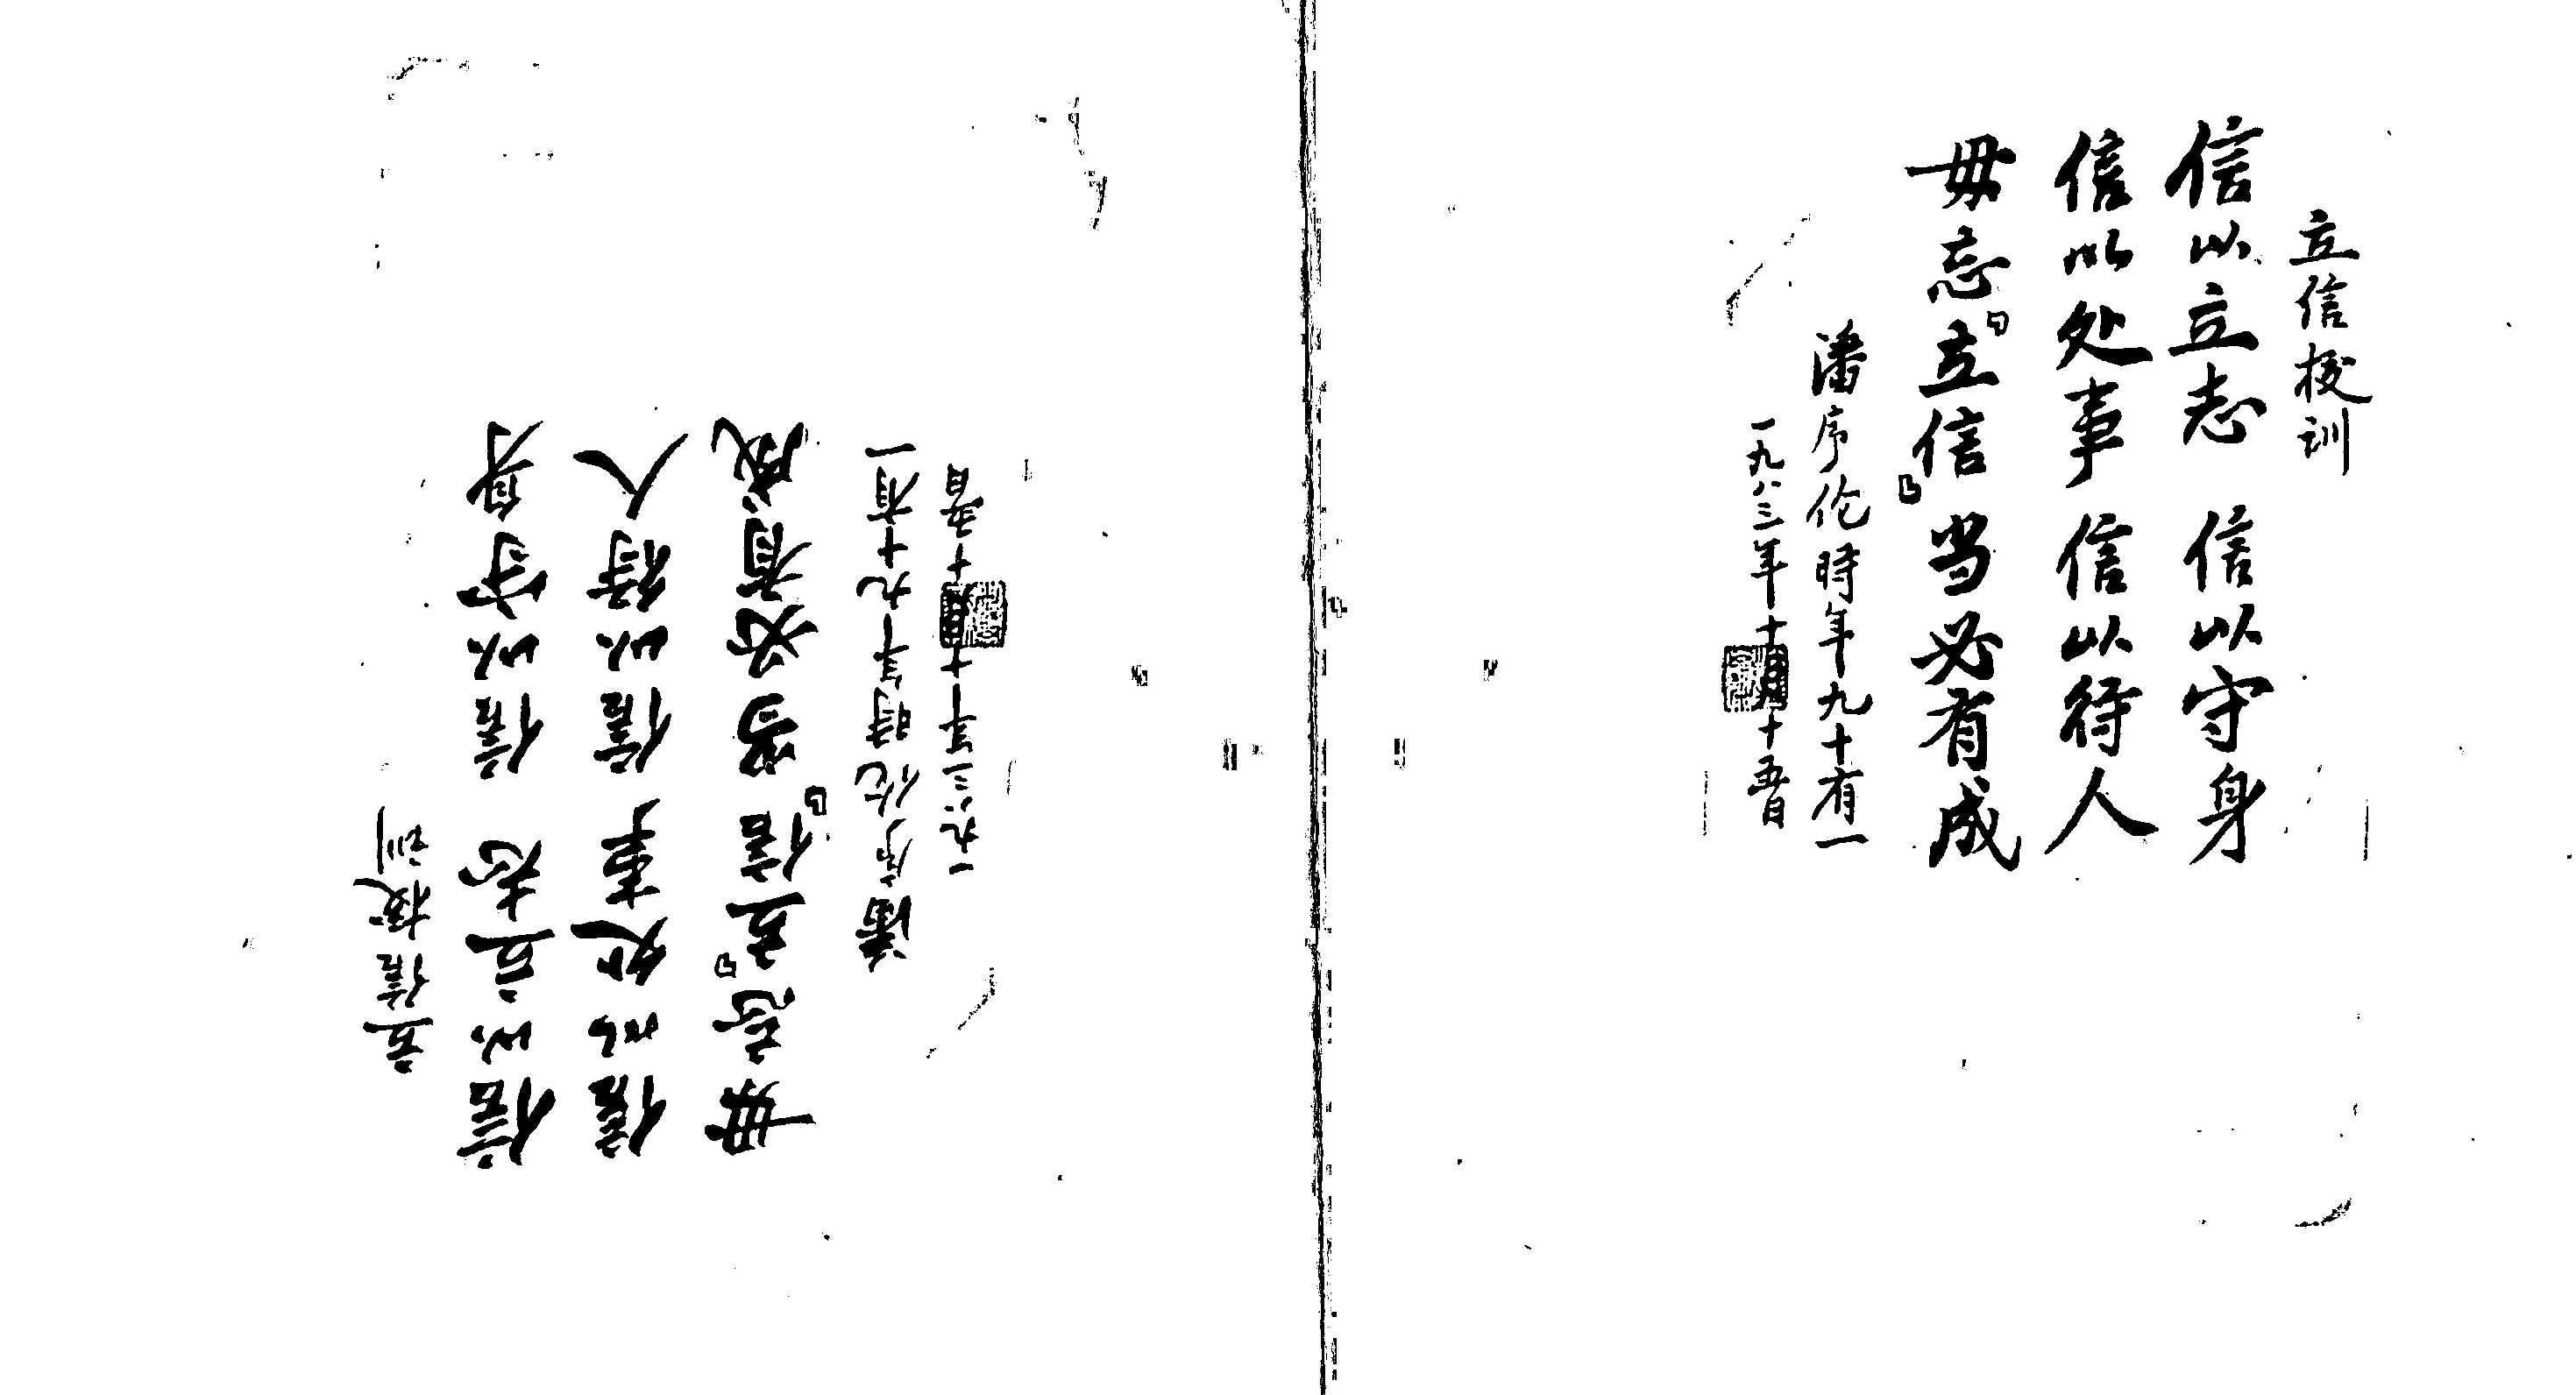 立信校训
信以立志 信以守身
信以处事 信以待人
毋忘「立信」当必有成
潘序伦時年九十有一
一九八三年十月十五日
立信校训
信以立志 信以守身
信以处事 信以待人
毋忘「立信」当必有成
潘序伦時年九十有一
一九八三年十月十五日